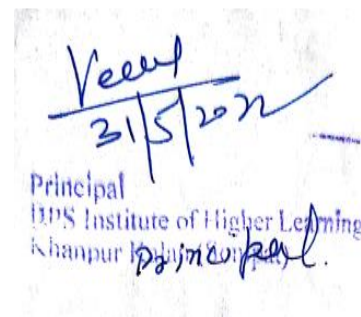 31/5/2022
Principal
DPS Institute of Higher Learning
Khanpur
principal.